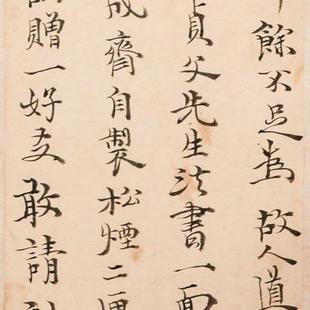 餘不足為故人道
貞父先生法書一面
成齋自製松煙二匣
贈一好友敢請